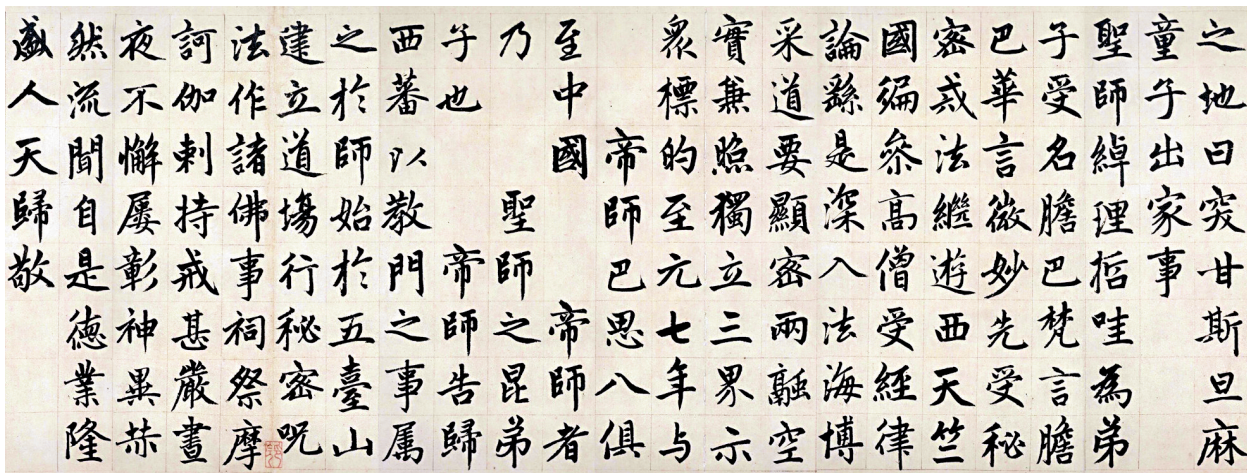 之地曰突甘斯旦麻
童子出家事
聖師綽理哲哇為弟
子受名膽巴梵言膽
巴華言微妙先受秘
密戒法繼遊西天竺
國編參高僧受經律
論繇是深入法海博
采道要顯密兩融空
實兼照獨立三界示
衆標的至元七年与
帝師巴思八俱
至中國 帝師者
乃 聖師之昆弟
子也 帝師告歸
西蕃以教門之事属
之於師始於五臺山
建立道場行秘密呪
法作諸佛事祠祭摩
訶伽剌持戒甚嚴晝
夜不懈屢彰神異赫
然流聞自是德業隆
盛人天歸敬